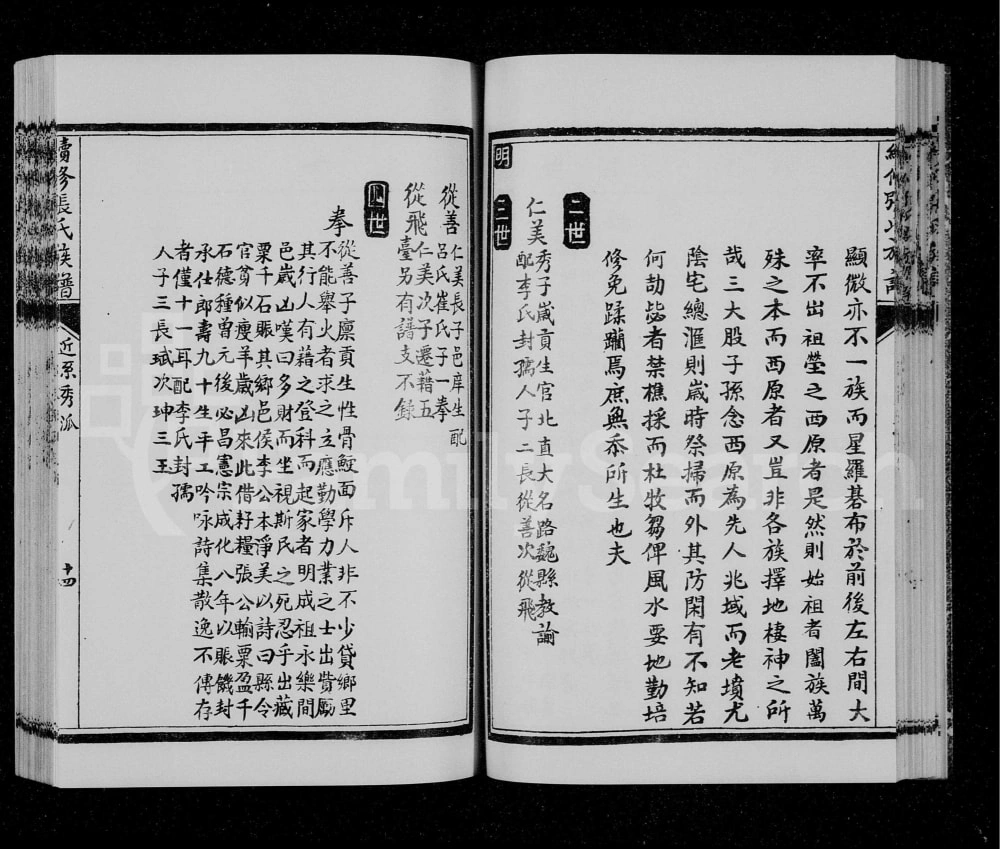 續修張氏族譜
顯微亦不一族而星羅碁布於前後左右間大
率不出祖塋之西原者是然則始祖者闔族萬
殊之本而西原者又豈非各族擇地棲神之所
哉三大股子孫念西原為先人兆域而老墳尤
陰宅總滙則嵗時祭掃而外其防閑有不知若
何劼毖者禁樵採而杜牧芻俾風水要地勤培
修免蹂躪焉庶無忝所生也夫
二世
仁美秀子嵗貢生官北直大名路魏縣教諭
配李氏封孺人子二長從善次從飛
明
三世
從善仁美長子邑庠生配
呂氏崔氏子一拳
從飛仁美次子遷藉五
臺另有譜支不錄
四世
拳從善子廪貢生性骨鯁面斥人非不少貸鄉里
不能舉火者求之立應勤學力業之士出貲勵
其行人有藉之登科而起家者明成祖永樂間
邑嵗凶嘆曰多財而坐視斯民之死忍乎出藏
粟千石賑其鄉邑侯李公本淨美以詩曰縣令
官貧似瘦羊嵗凶來此借籽糧張公輸粟盈千
石德種曽元後必昌憲宗成化八年以賑饑封
承仕郎壽九十生平工吟咏詩集散逸不傳存
者僅十一耳配李氏封孺
人子三長珷次珅三玉
續修張氏族譜
近系秀派
十四